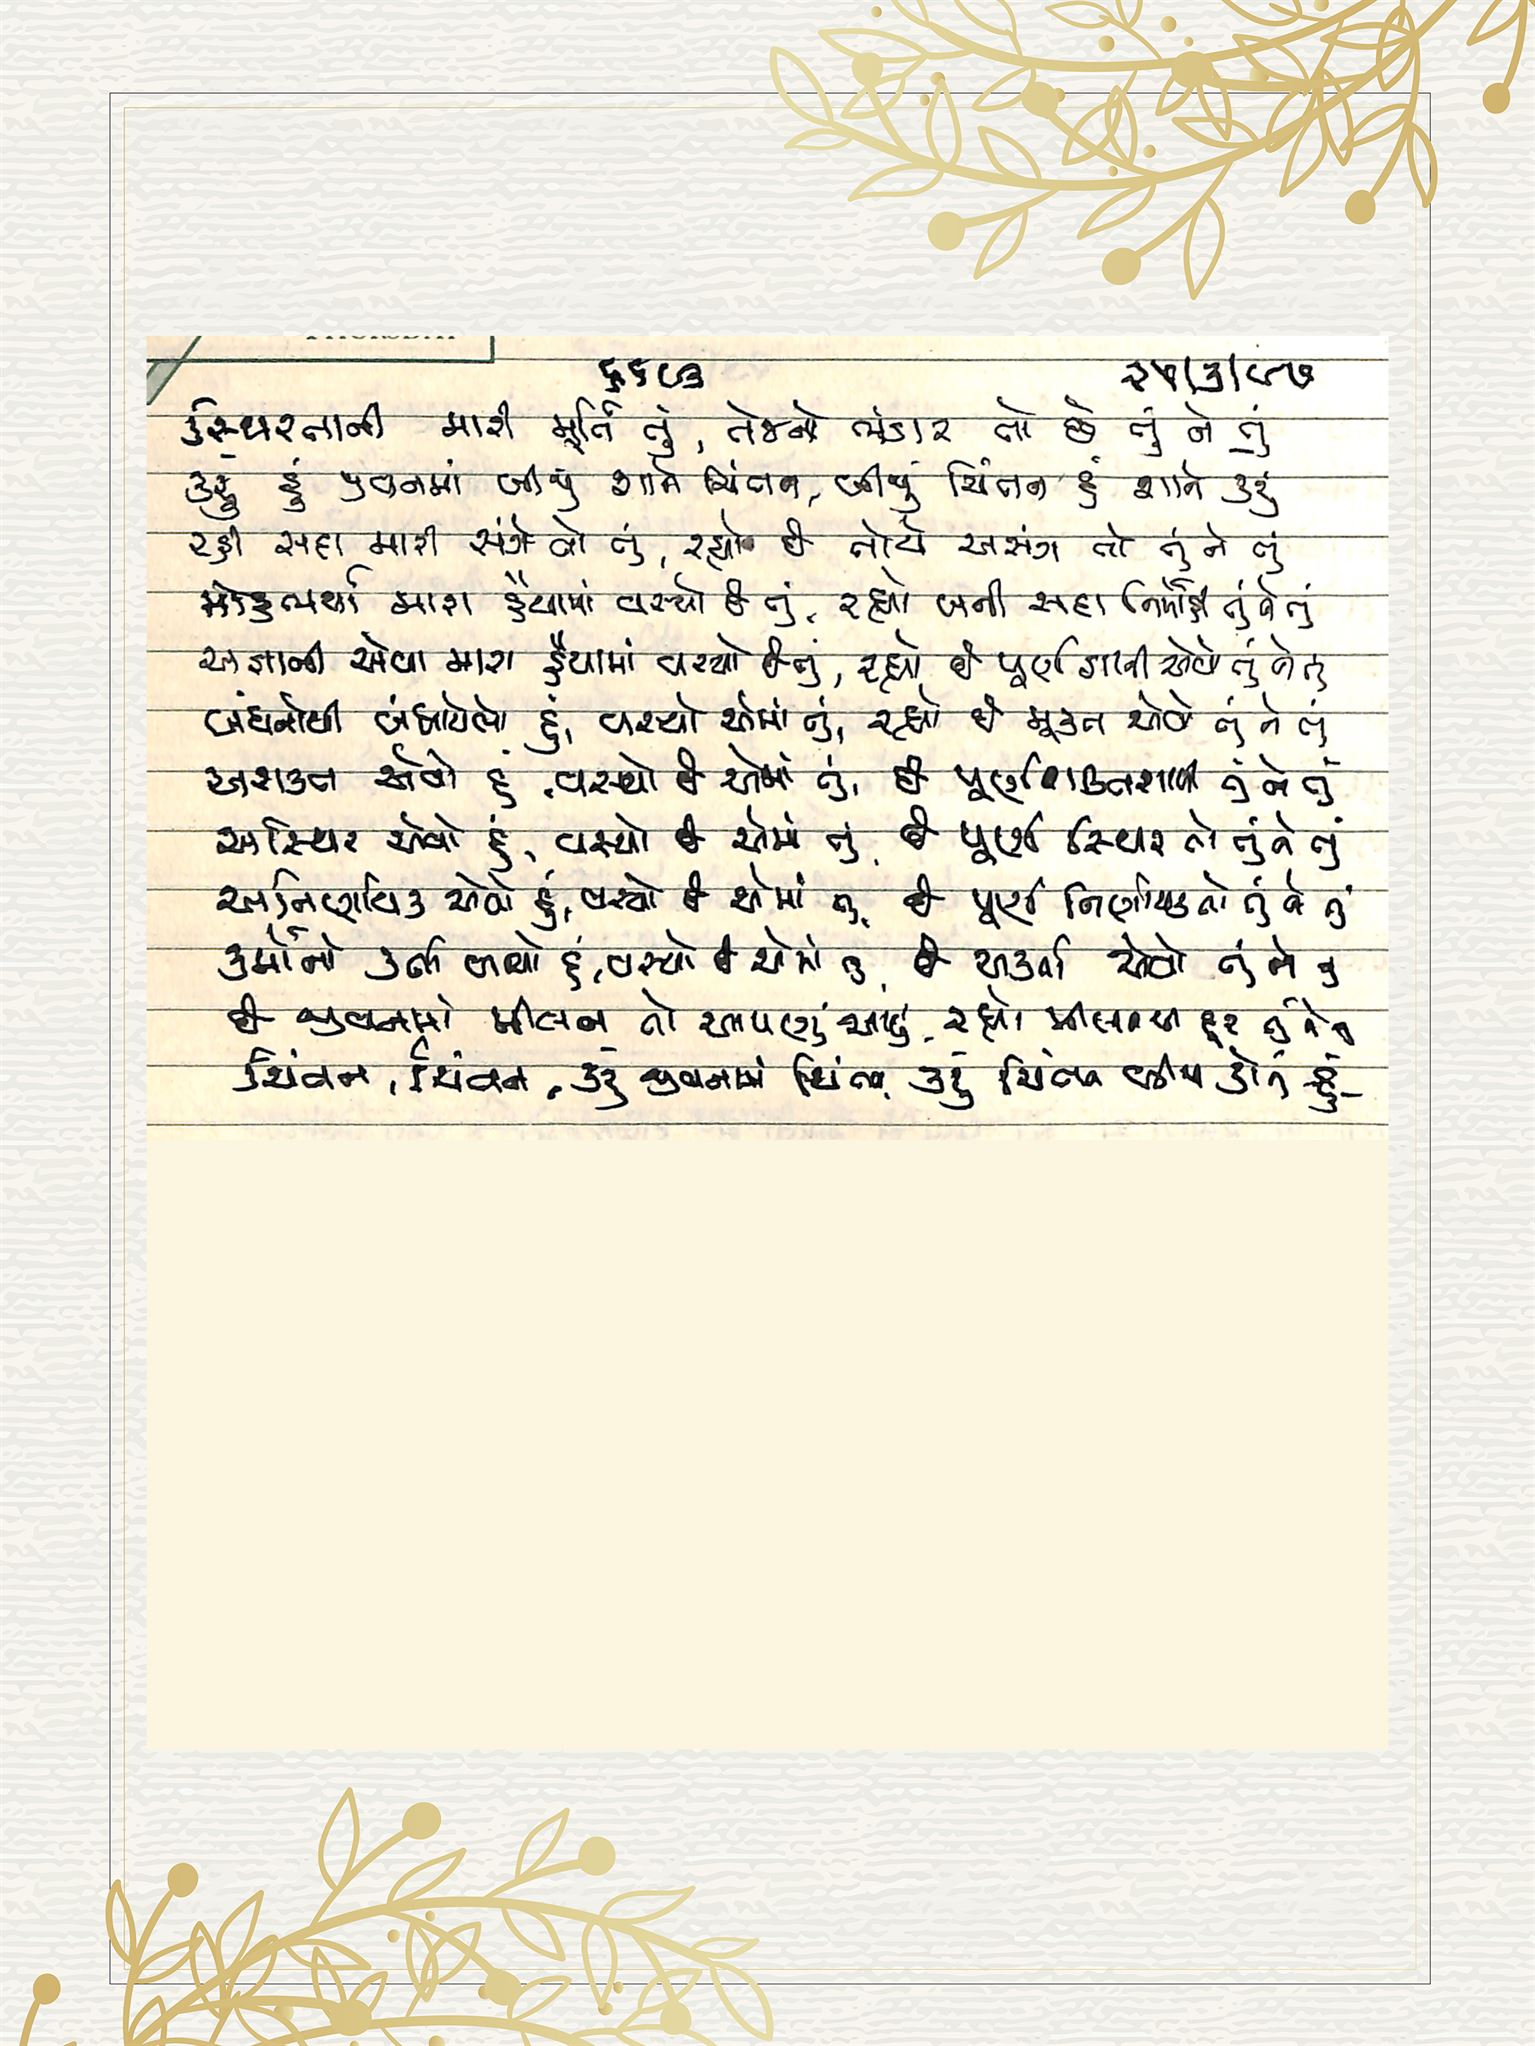 ૬૬૯૩ ૨૫/૩/૯૭
સ્થિરતાની મારી મૂર્તિ તું, તેજનો ભંડાર તો છે તું ને તું
કરું હું જીવનમાં બીજું શાને ચિંતન, બીજું ચિંતન હું શાને કરું
રહી સદા મારી સંગે તો તું, રહ્યો છે તોયે અસંગ તો તું ને તું
મારા હૈયામાં વસ્યો છે તું, રહ્યો બની સદા નિર્મોહી તું ને તું
અજ્ઞાની એવા મારા હૈયામાં વસ્યો છે તું, રહ્યો છે પૂર્ણ જ્ઞાની એવો તું ને તું
બંધનોથી બંધાયેલો હું, વસ્યો એમાં તું, રહ્યો છે મૂક્ત એવો તું ને તું
અશક્ત એવો હું, વસ્યો છે એમાં તું, છે પૂર્ણ શક્તિશાળી તું ને તું
અસ્થિર એવો હું, વસ્યો છે એમાં તું, છે પૂર્ણ સ્થિર તો તું ને તું
અનિર્ણાયક એવો હું, વસ્યો છે એમાં તું, છે પૂર્ણ નિર્ણાયક તો તું ને તું
કર્મોનો કર્તા બન્યો હું, વસ્યો છે એમાં તું, છે અકર્તા એવો તું ને તું
છે જીવનમાં મીલન તો આપણું, રહ્યો દૂર તું ને તું
ચિંતન, ચિંતન, કરું જીવનમાં ચિંતન, કરું ચિંતન બીજા કોનું હું